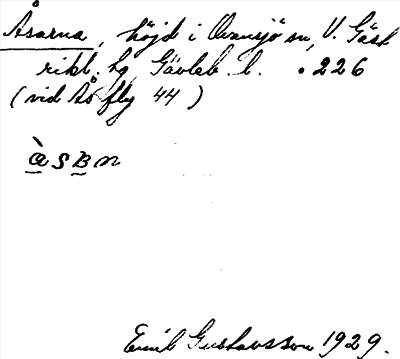 Åsarna, höjd i Ovansjö sn, V. Gäst
rikl. hg, Gävleb. l. . 226
(vid Åsfly 44)
àsʙn
Emil Gustavsson 1929.